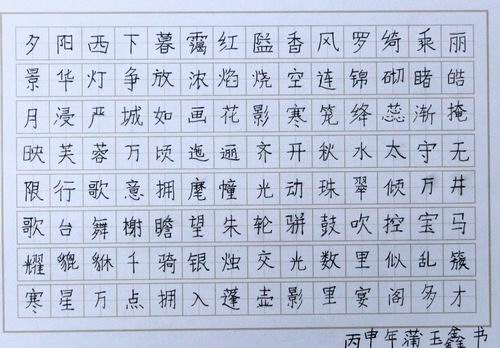 夕阳西下暮霭红隘香风罗绮乘丽
景华灯争放浓焰烧空连锦砌睹皓
月浸严城如画花影寒笼绛蕊渐掩
映芙蓉万顷迤逦齐开秋水太守无
限行歌意拥麾幢光动珠翠倾万井
歌台舞榭瞻望朱轮骈鼓吹控宝马
耀貔貅千骑银烛交光数里似乱簇
寒星万点拥入蓬壶影里宴阁多才
丙申年蒲玉鑫书